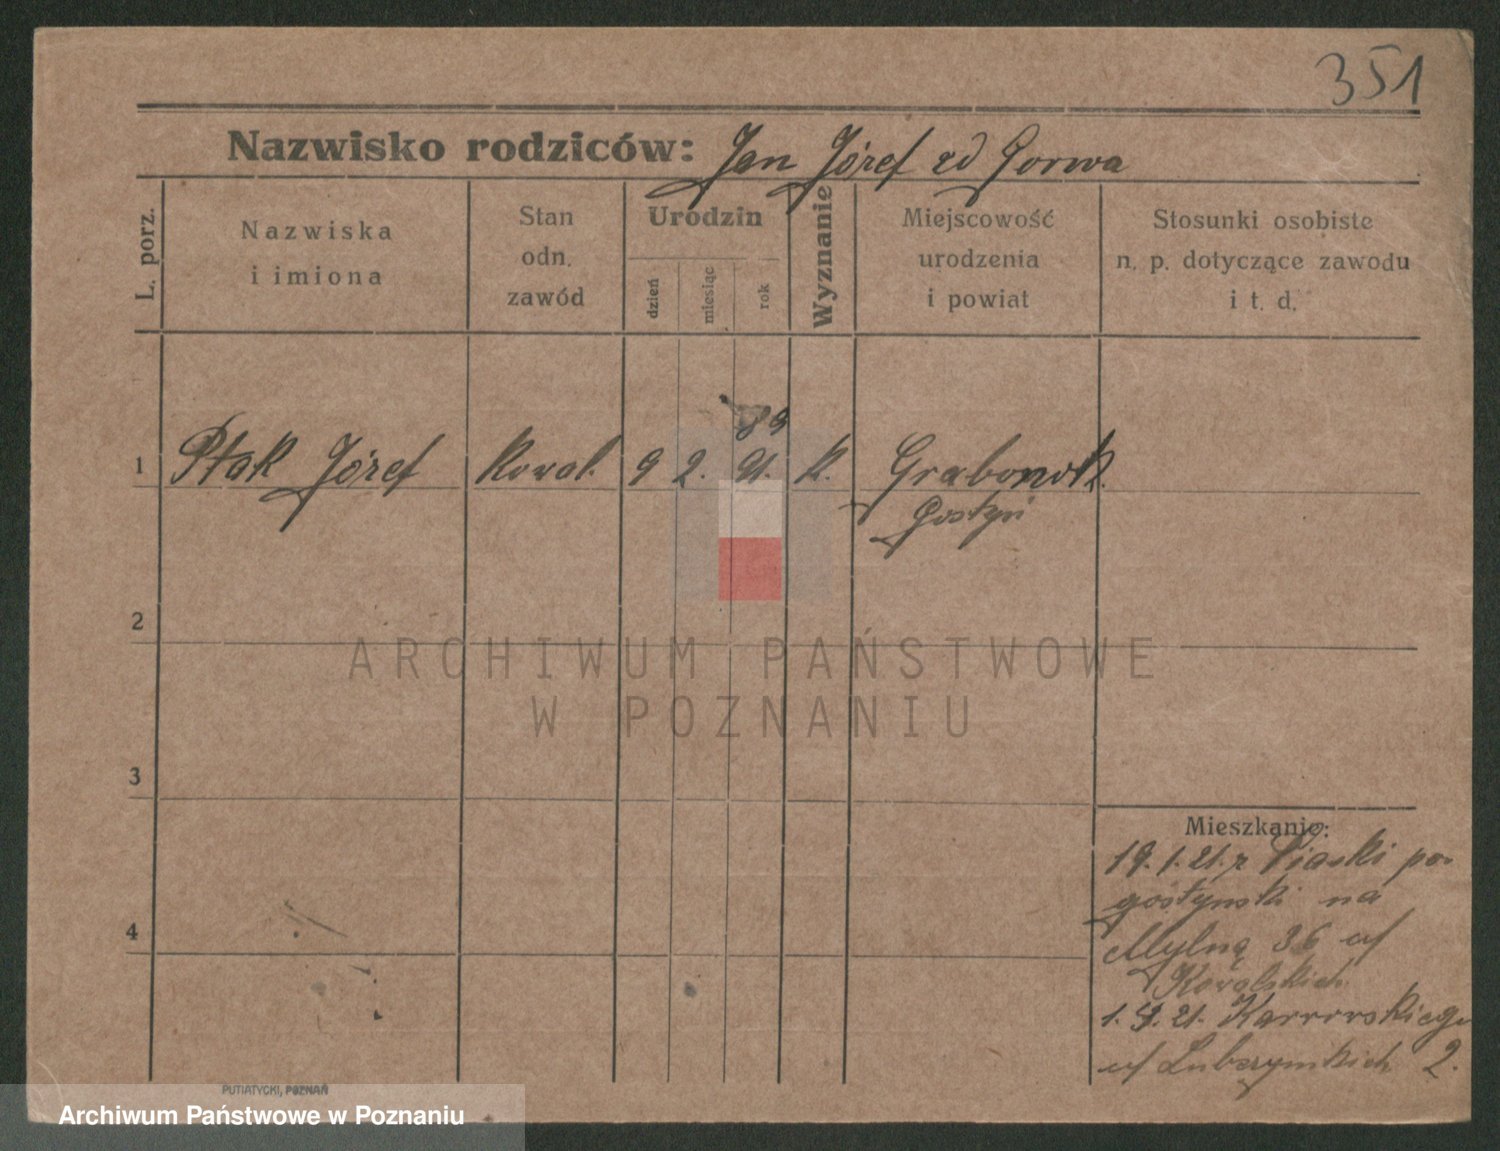 351
Nazwisko rodziców: Jan Józef zd Gorwa
L. porz.
Nazwiska
i imiona
Stan
odn.
zawód
Urodzin
dzień
miesiąc
rok
Wyznanie
Miejscowość
urodzenia
i powiat
Stosunki osobiste
n. p. dotyczące zawodu
i t. d.
89
1 Ptak Józef kowal. 9 2. 21. k. Grabonok
Gostyń
2
ARCHIWUM PAŃSTWOWE
W POZNANIU
3
Mieszkanie:
19.1.21. z Piaski po.
gostynski na
4
Mylną 36 u/
Kowalskich
1. 21. Karrorskiego
u/ 2.
PUTIATYCKI, POZNAŃ
Archiwum Państwowe w Poznaniu